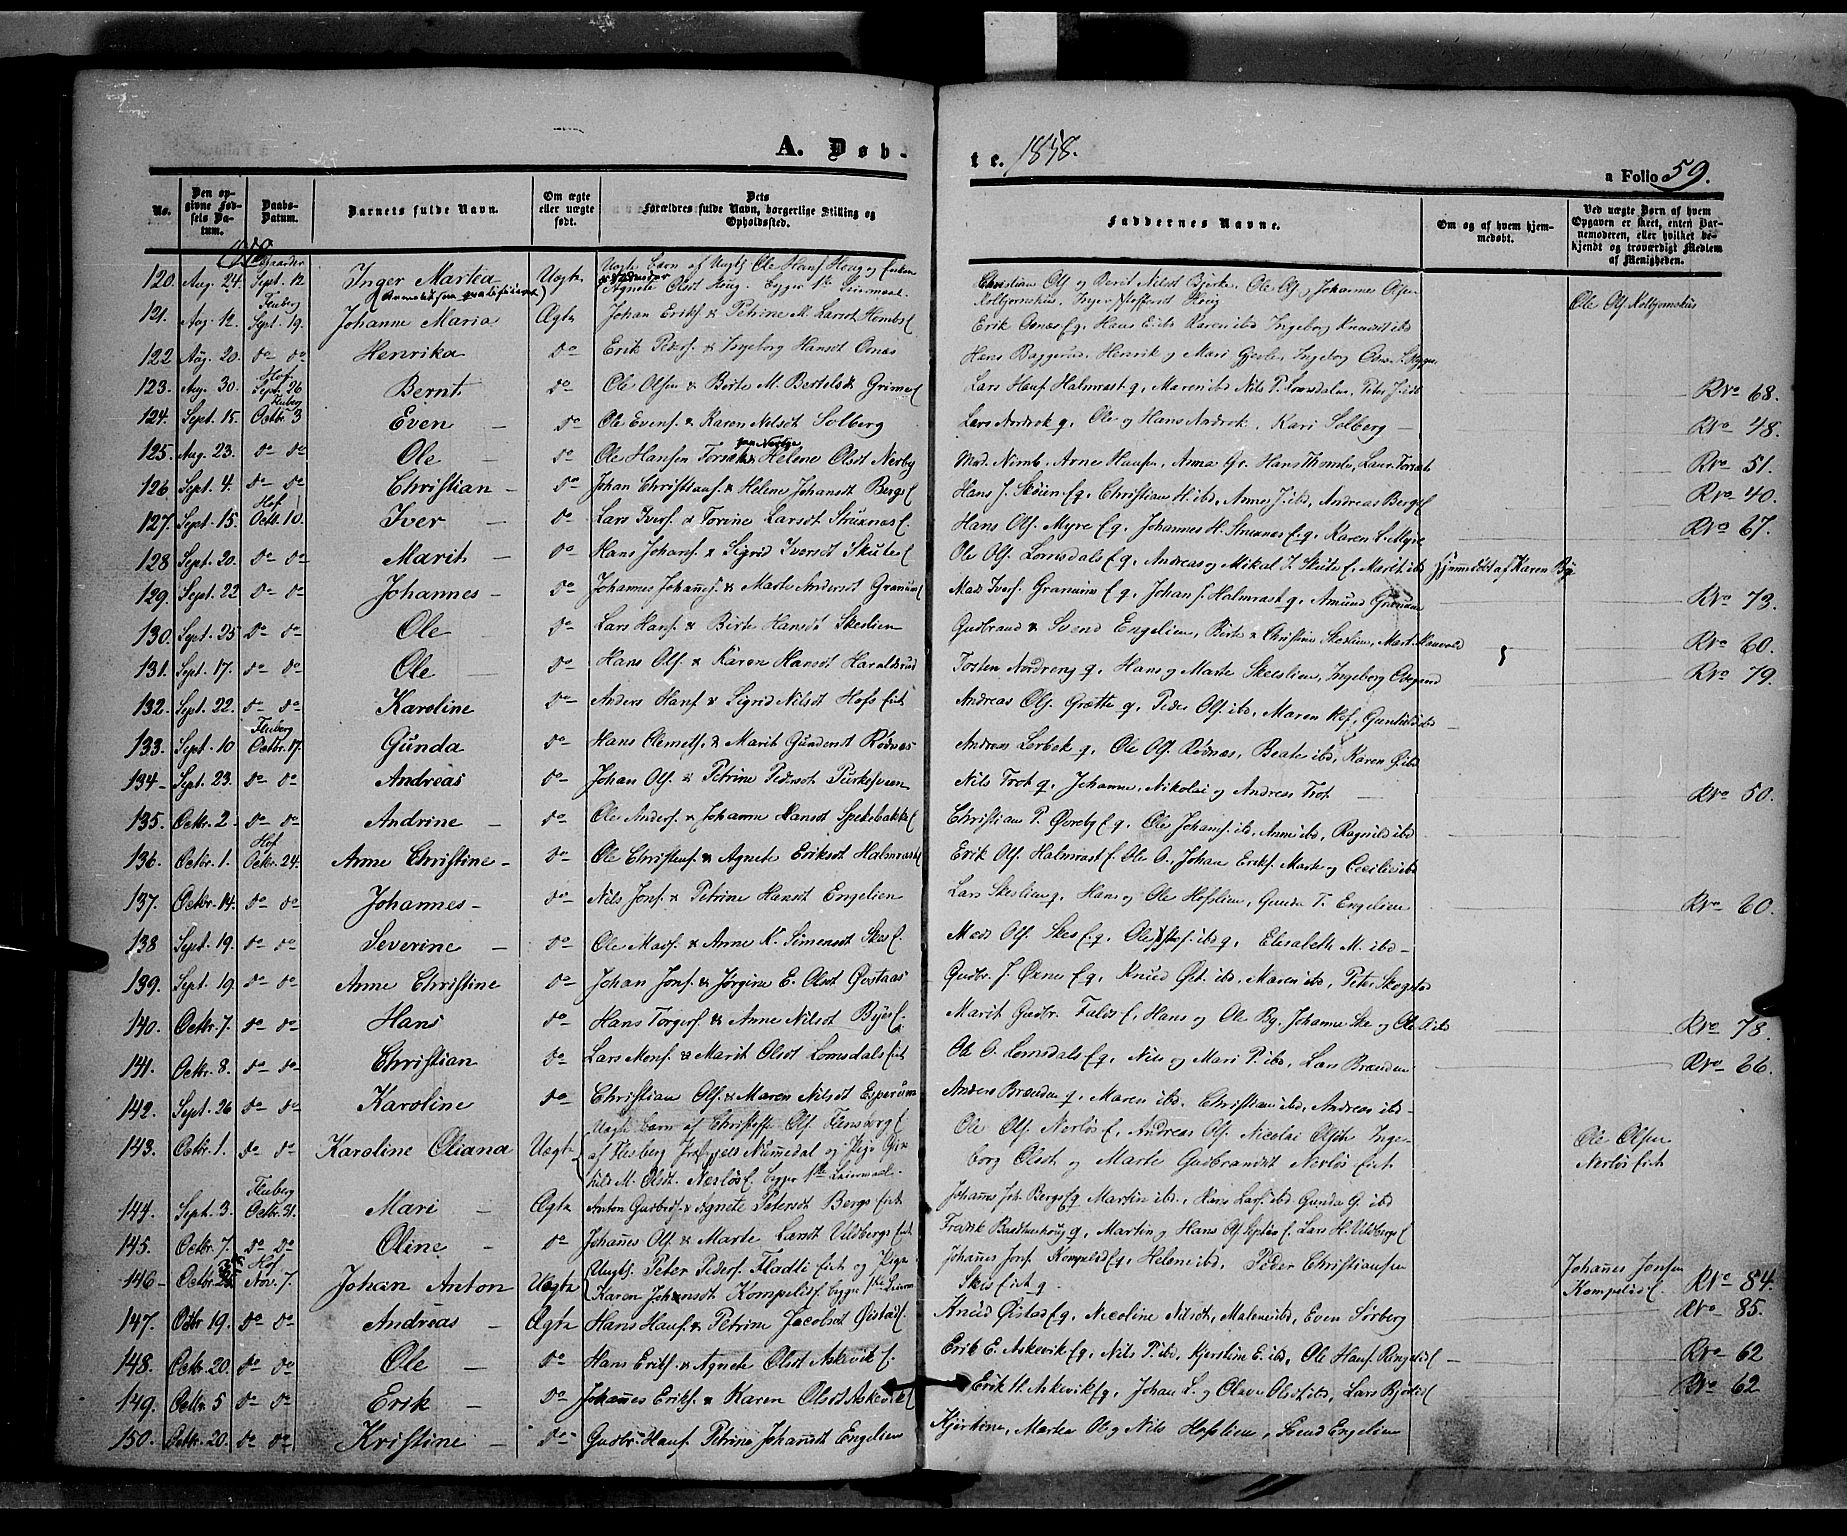 A. Døb-
te. 1858.
a Folio 59.
No.
Den opgivne Fødsels Datum.
Daabs-Datum.
Barnets fulde Navn.
Om ægte eller uægte født.
Dets Forældres fulde Navn, borgerlige Stilling og Opholdssted.
Faddernes Navne.
Om og af hvem hjemmedøbt.
Ved uægte Børn af hvem Opgaven er skeet, enten Barnemoderen, eller hvilket bekjendt og troværdigt Medlem af Menigheden.
1858
120. Aug. 24. Sept. 12 Inger Marka Uægte Uægte Barn af Ole Hans. Houg og
Agnete Olsdt Houg. begges 1ste Leiermaal. Christian Ols. og Berit Nilsdt Bjørke, Ole Ols. og Johannes Olsen
121. Aug. 12. Fluberg Sept. 19. Johanne Maria Ægte Johan Eriks. & Petrine M. Larsdt Erik Osnæs E. g. Hans E. ibd. Karen ibd. Ingeborg Knudsdt ibd
122 Aug. 20. do do Henrika do Erik Peders. & Ingeborg Hansdt Osnæs Hans Baggerud, Henrik og Mari
123. Aug. 30. Hof Sept. 26 Bernt do Ole Olsen & Birte M. Bertelsdt Lars Hans. Halmrast g., Maren ibd Nils P. Lomsdalen, Peter J. ibd No 68.
124. Sept. 15. Fluberg Octbr. 3 Even - do Ole Evens. & Karen Nilsdt Solberg Lars Nordrok g., Ole og Hans Androk, Kari Solberg - No 48.
125. Aug. 23. do do Ole - do Ole Hansen & Helene Olsdt Nerby Mad. Nirnb, Arne Hansen, Anna Gr. No 51.
126 Sept. 4. do do Christian - do Johan Christians. & Helene Johansdt Bergsf Hans J. Skøien E. g. Christian H. ibd, Anne J. ibd, Andreas Bergsf No 40.
127. Sept. 15. Hof Octbr. 10. Iver - do Lars Ivers. & Torine Larsdt Struxnæsf. Hans Ols. Myre E. g. Johannes H. Struxnæs E. g. Karen L. Myre No 67.
128 Sept. 20. do do Marit - do Hans Johans. & Sigrid Iversdt Skutef Ole Ols. Lomsdals E. g. Andreas og Mikal J. Skute E. Marit ibd hjemmedøbt af Karen By
129. Sept. 22 do do Johannes - do Johannes Johanes. & Marte Andersdt Granum Mads Ivers. Granum E. g. Johan J. Halmrast g. Amund Granum No 73.
130. Sept. 25 do do Ole - do Lars Hans. & Birte Hansdt Skeslien Gudbrand & Svend Engelien, Birte & Christine Skeslien, No 60.
131. Sept. 17. do do Ole - do Hans Ols. & Karen Hansdt Haraldsrud Tosten Nordreng g. Hans og Marte Skeslien, Ingeborg No 79.
132. Sept. 22. do do Karoline do Anders Hans. & Sigrid Nilsdt Hofs Eiet Andreas Ols. Grætte g. Peder Ols. ibd, Maren Hof, Gunhild ibd
133. Sept. 10 Fluberg Octbr. 17. Gunda do Hans Clemets. & Marit Gundersdt Rødnæs Andreas Lerbek g. Ole Ols. Rødnæs, Beate ibd, Karen ibd
134 - Sept. 23. do do Andreas do Johan Ols. & Petrine Pedersdt Purkesveen Nils Trot g. Johanne, Nikolai og Andreas Trot - No 50.
135. Octbr. 2. do do Andrine - do Ole Anders. & Johanne Hansdt Speksbakk Christian P. Øvreby E. g. Ole Johans. ibd. Anne ibd, Ragnild ibd
136. Octbr. 1. Hof Octbr. 24. Anne Christine - do Ole Christens. & Agnete Eriksdt Halmrast Erik Ols. Halmrast E. Ole O., Johan Eriks. Marte og Cecilie ibd
137. Octbr. 14. do do Johannes - do Nils Jons. & Petrine Hansdt Engelien Lars Skeslien g. Hans og Ole Hofslien, Gunda T. Engelien No 60.
138 Sept. 19. do do Severine - do Ole Mads. & Anne K. Simensdt Skesf. Mads Ols. Skes E. g. Ole ibd g. Elisabeth M. ibd -
139. Sept. 19. do do Anne Christine do Johan Jons. & Jørgine E. Olsdt Gudbr. J. Øxne E. g. Knud ibd, Maren ibd, Peter Skogstad
140. Octbr. 7. do do Hans do Hans Torgers. & Anne Nilsdt Byesf. Marit Gudbr. Fuldsf., Hans og Ole By, Johanne Ske og Ole ibd No 78.
141. Octbr. 8. do do Christian do Lars Mons. & Marit Olsdt Lomsdals Eiet Ole O. Lomsdals E. g., Nils og Mari P. ibd, Lars Brænden No 66.
142. Sept. 26 do do Karoline do Christian Ols. & Maren Nilsdt Esperum Anders Brænden g. Maren ibd. Christian ibd, Andreas ibd -
143. Octbr. 1. do do Karoline Oliana Uægte Uægte Barn af Christoffer Ols. Flensborgf
af Flesberg Præstegjeld Numedal og Pige
M. Olsdt Nerløsf. begges 1ste Leiermaal. Ole Ols. Nerløs E. Andreas Ols. Nicolai Olsen Inge-
borg Olsdt og Marte Gudbrandsdt Nerløs Eiet Ole Olsen Nerløs Eiet
144. Sept. 3. Fluberg Octbr. 31. Mari - Ægte Anton Gudbrs. & Agnete Petersdt Bergs Eiet Johanes Joh. Bergs E. g. Martin ibd, Hans Lars. ibd Gunda G. ibd
145. Octbr. 7. do do Oline - do Johanes Ols. & Marte Larsdt Vildbergs Eiet Fredrik g. Martin og Hans Ols. Lars H. Vildbergsf
146 - Octbr. 25. Hof Nov. 7. Johan Anton Uægte Uægte. Peter Peders. Fladlie Eiet og Pige
Karen Johansdt Kompelisf. begges 1ste Leierm. Johanes Jons. Kompelis E. g. Helene ibd, Peder Christiansen
Skes Eiet g. Johanes Jonsen Kompelisf. No 84.
147. Octbr 19. do do Andreas - Ægte Hans Hans. & Petrine Jacobsdt Øistadf. Knud Øistad E. g. Nicoline Nilsdt, Malene ibd, Even Sørberg No 85.
148. Octbr. 20. do do Ole - do Hans Eriks. & Agnete Olsdt Askevikf. Erik E. Askevik E. g. Nils P. ibd, Kjersten E. ibd, Ole Hans. Ringelisf - No 62
149. Octbr. 5 do do Erik - do Johanes Eriks. & Karen Olsdt Askevikf Erik H. Askevik E. g. Johan L. og Olave Olsdt ibd, Lars No 62
150. Octbr. 20. do do Kristine - do Gudbr. Hans. Petrine Johansdt Engelien Kjerstine, Marthe O. og Nils Hofslien, Svend Engelien